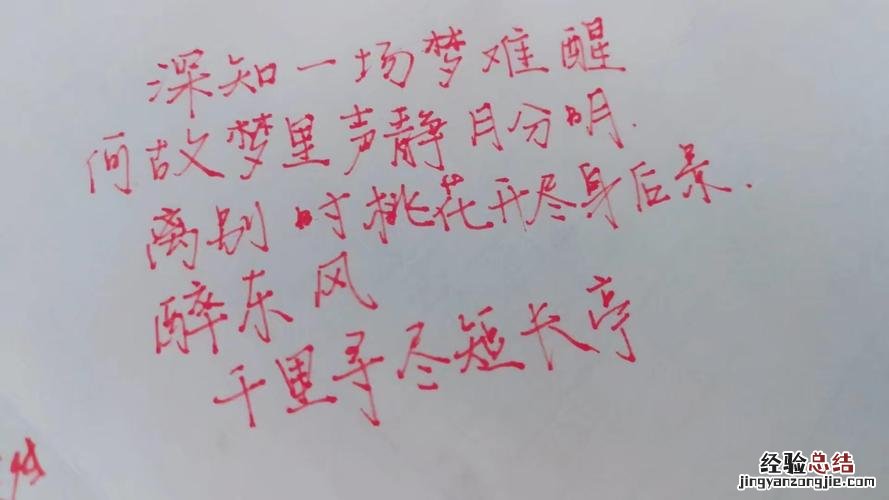 深知一场梦难醒
何故梦里声静月分明.
离别时桃花开尽身后景.
醉东风
千里寻尽短长亭
经验总结
jingyanzongjie.com